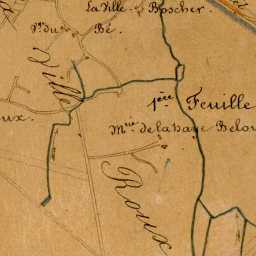 La Ville Boscher.
Pt. du Bé.
Ville
1ère Feuille
ux.
Min de la haye Belou
Roux